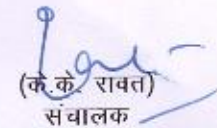 (के.के. रावत)
संचालक